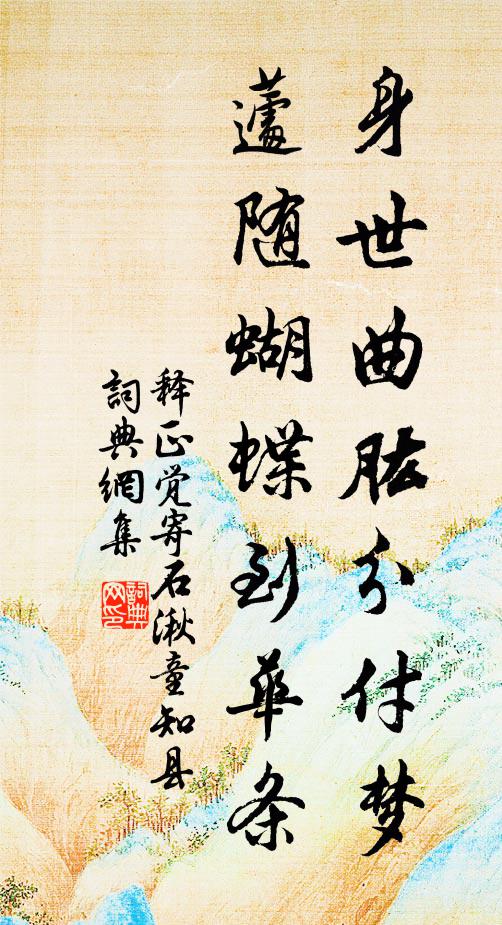 身世曲肱分付梦
蘧随蝴蝶到华条
释正觉寄石湫童知县
詞典網集
詞典
网印